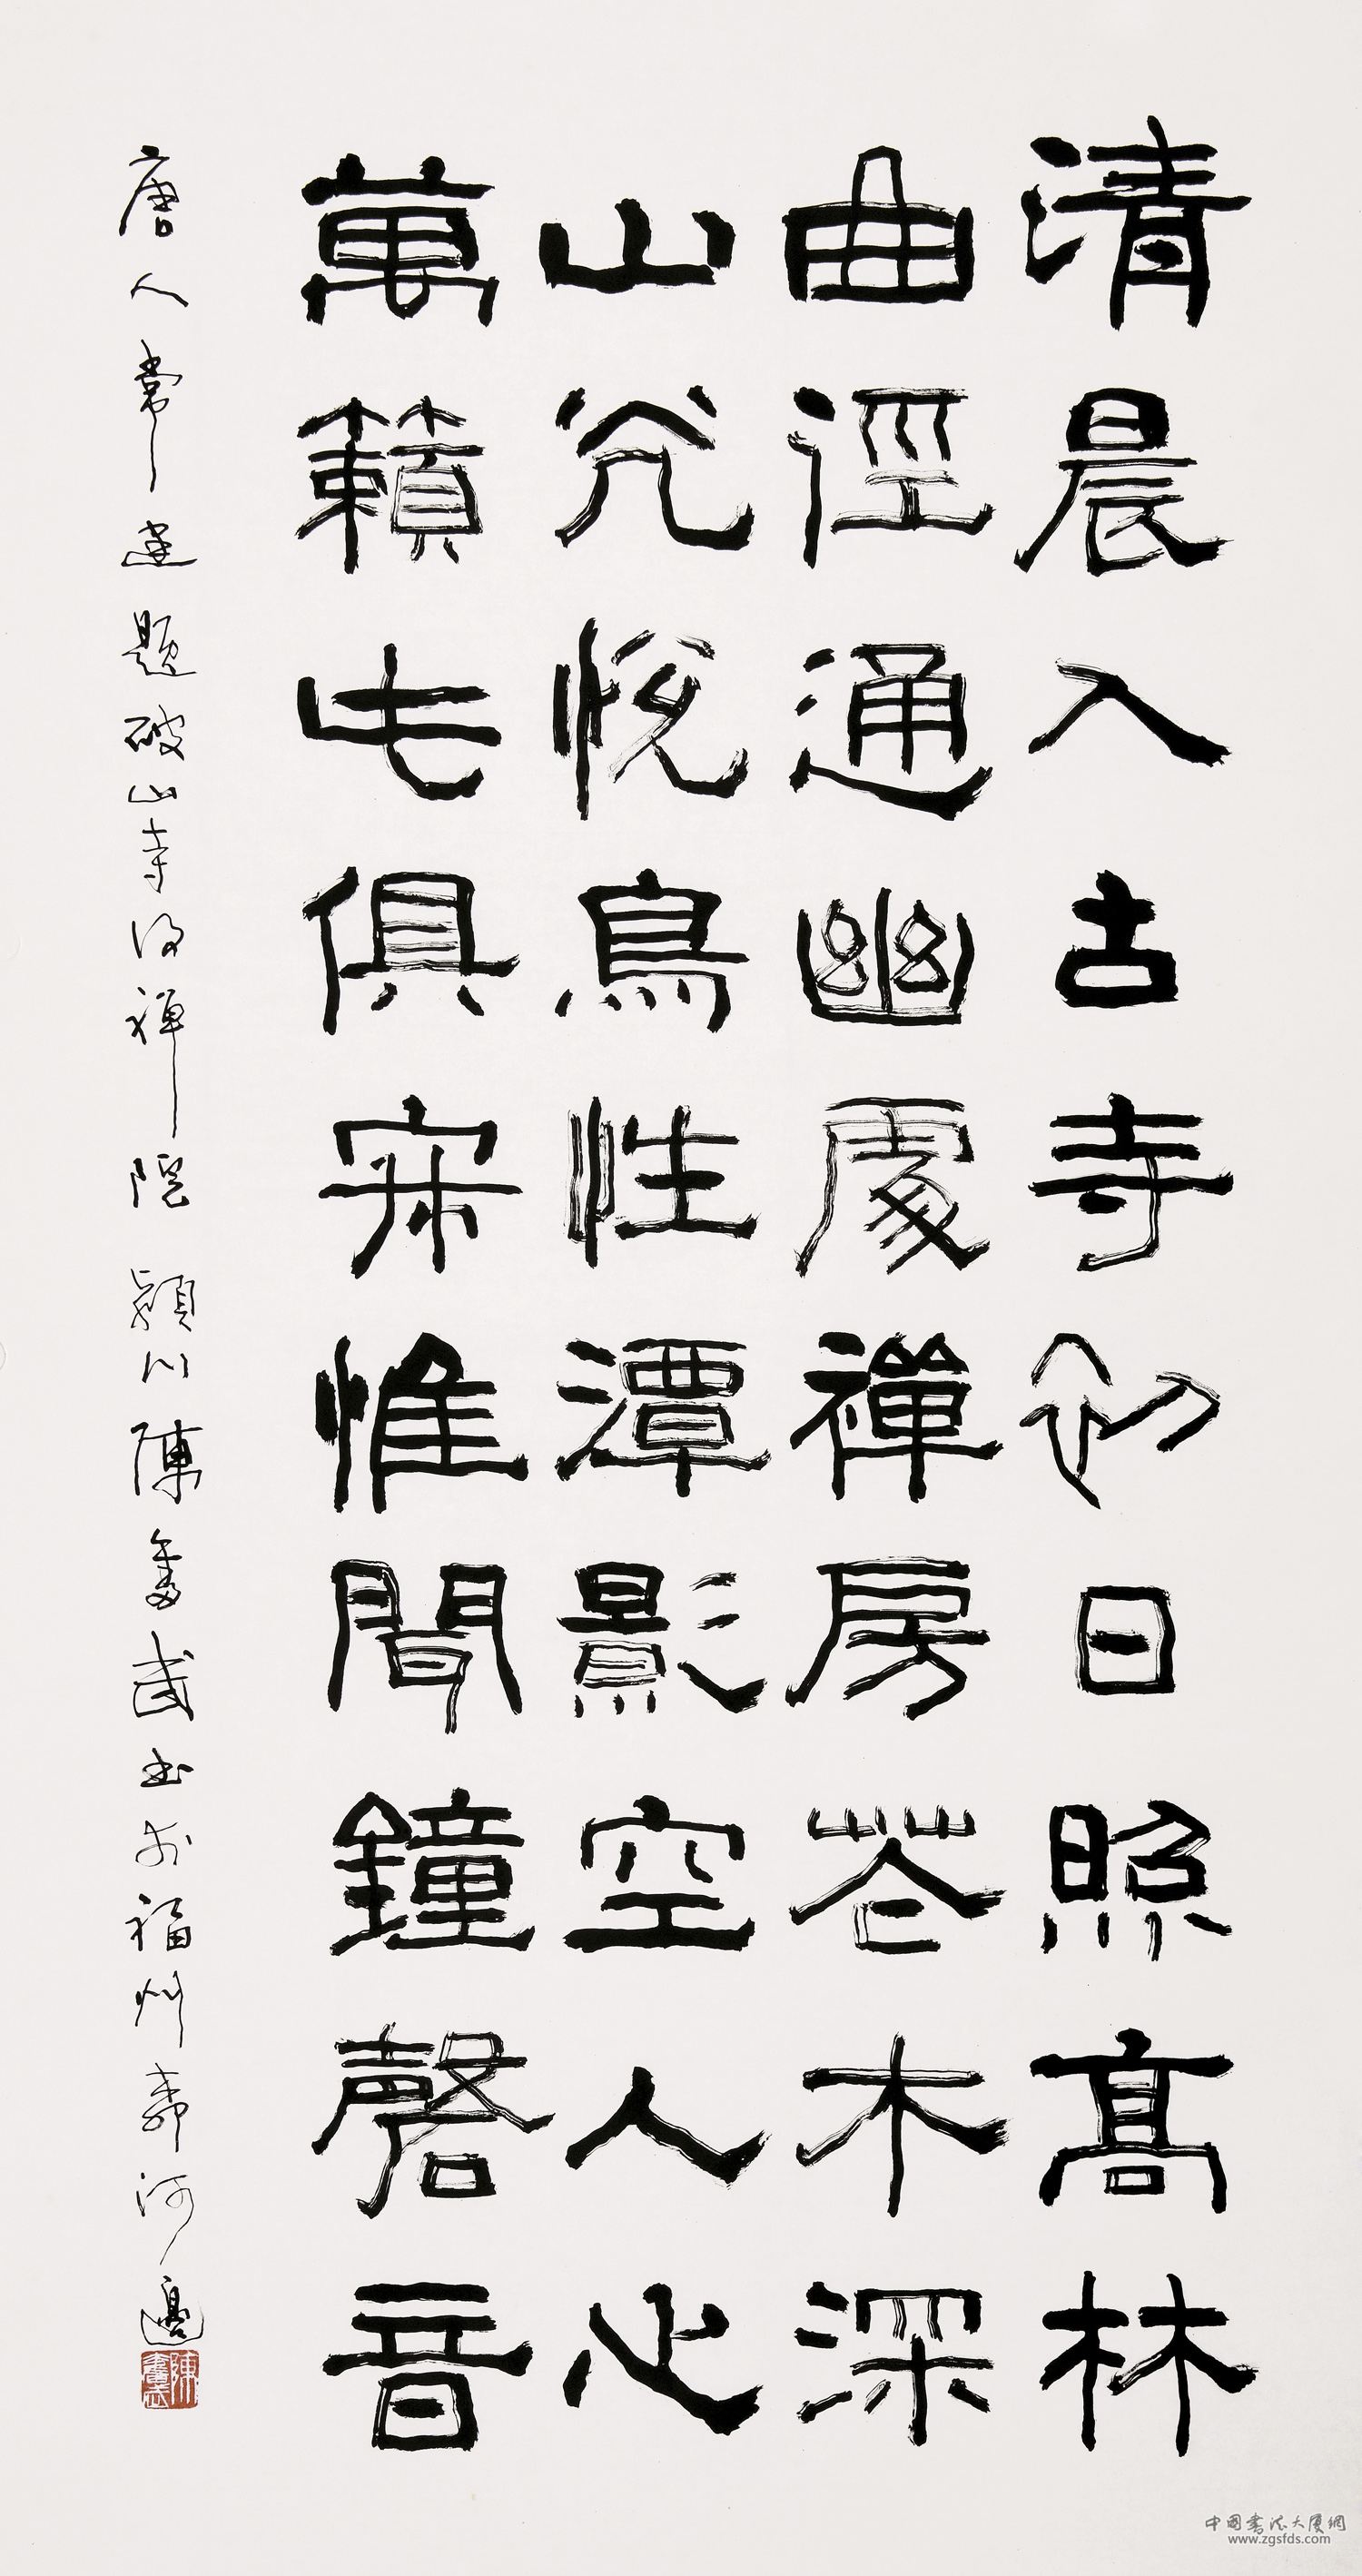 清晨入古寺初日照高林
曲徑通幽處禪房花木深
山光悅鳥性潭影空人心
萬籟此俱寂惟聞鐘磬音
唐人常建題破山寺後禪院 潁川陳奮武書於福州河邊
陳奮武
中國書法大廈網
www.zgsfds.com